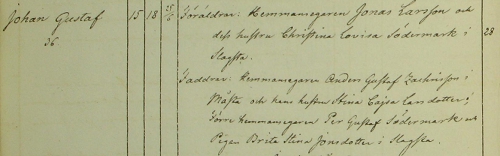 Johan Gustaf 15 18 25/6 Föräldrar: Hemmansegaren Jonas Larsson och
36 dess hustru Christina Lovisa Södermark i 28
Slagsta.
Faddrar: Hemmansegaren Anders Gustaf Zachrisson i
Måsta och hans hustru Stina Cajsa Larsdotter;
Förre hemmansegaren Per Gustaf Södermark och
Pigan Brita Stina Jonsdotter i Slagsta.